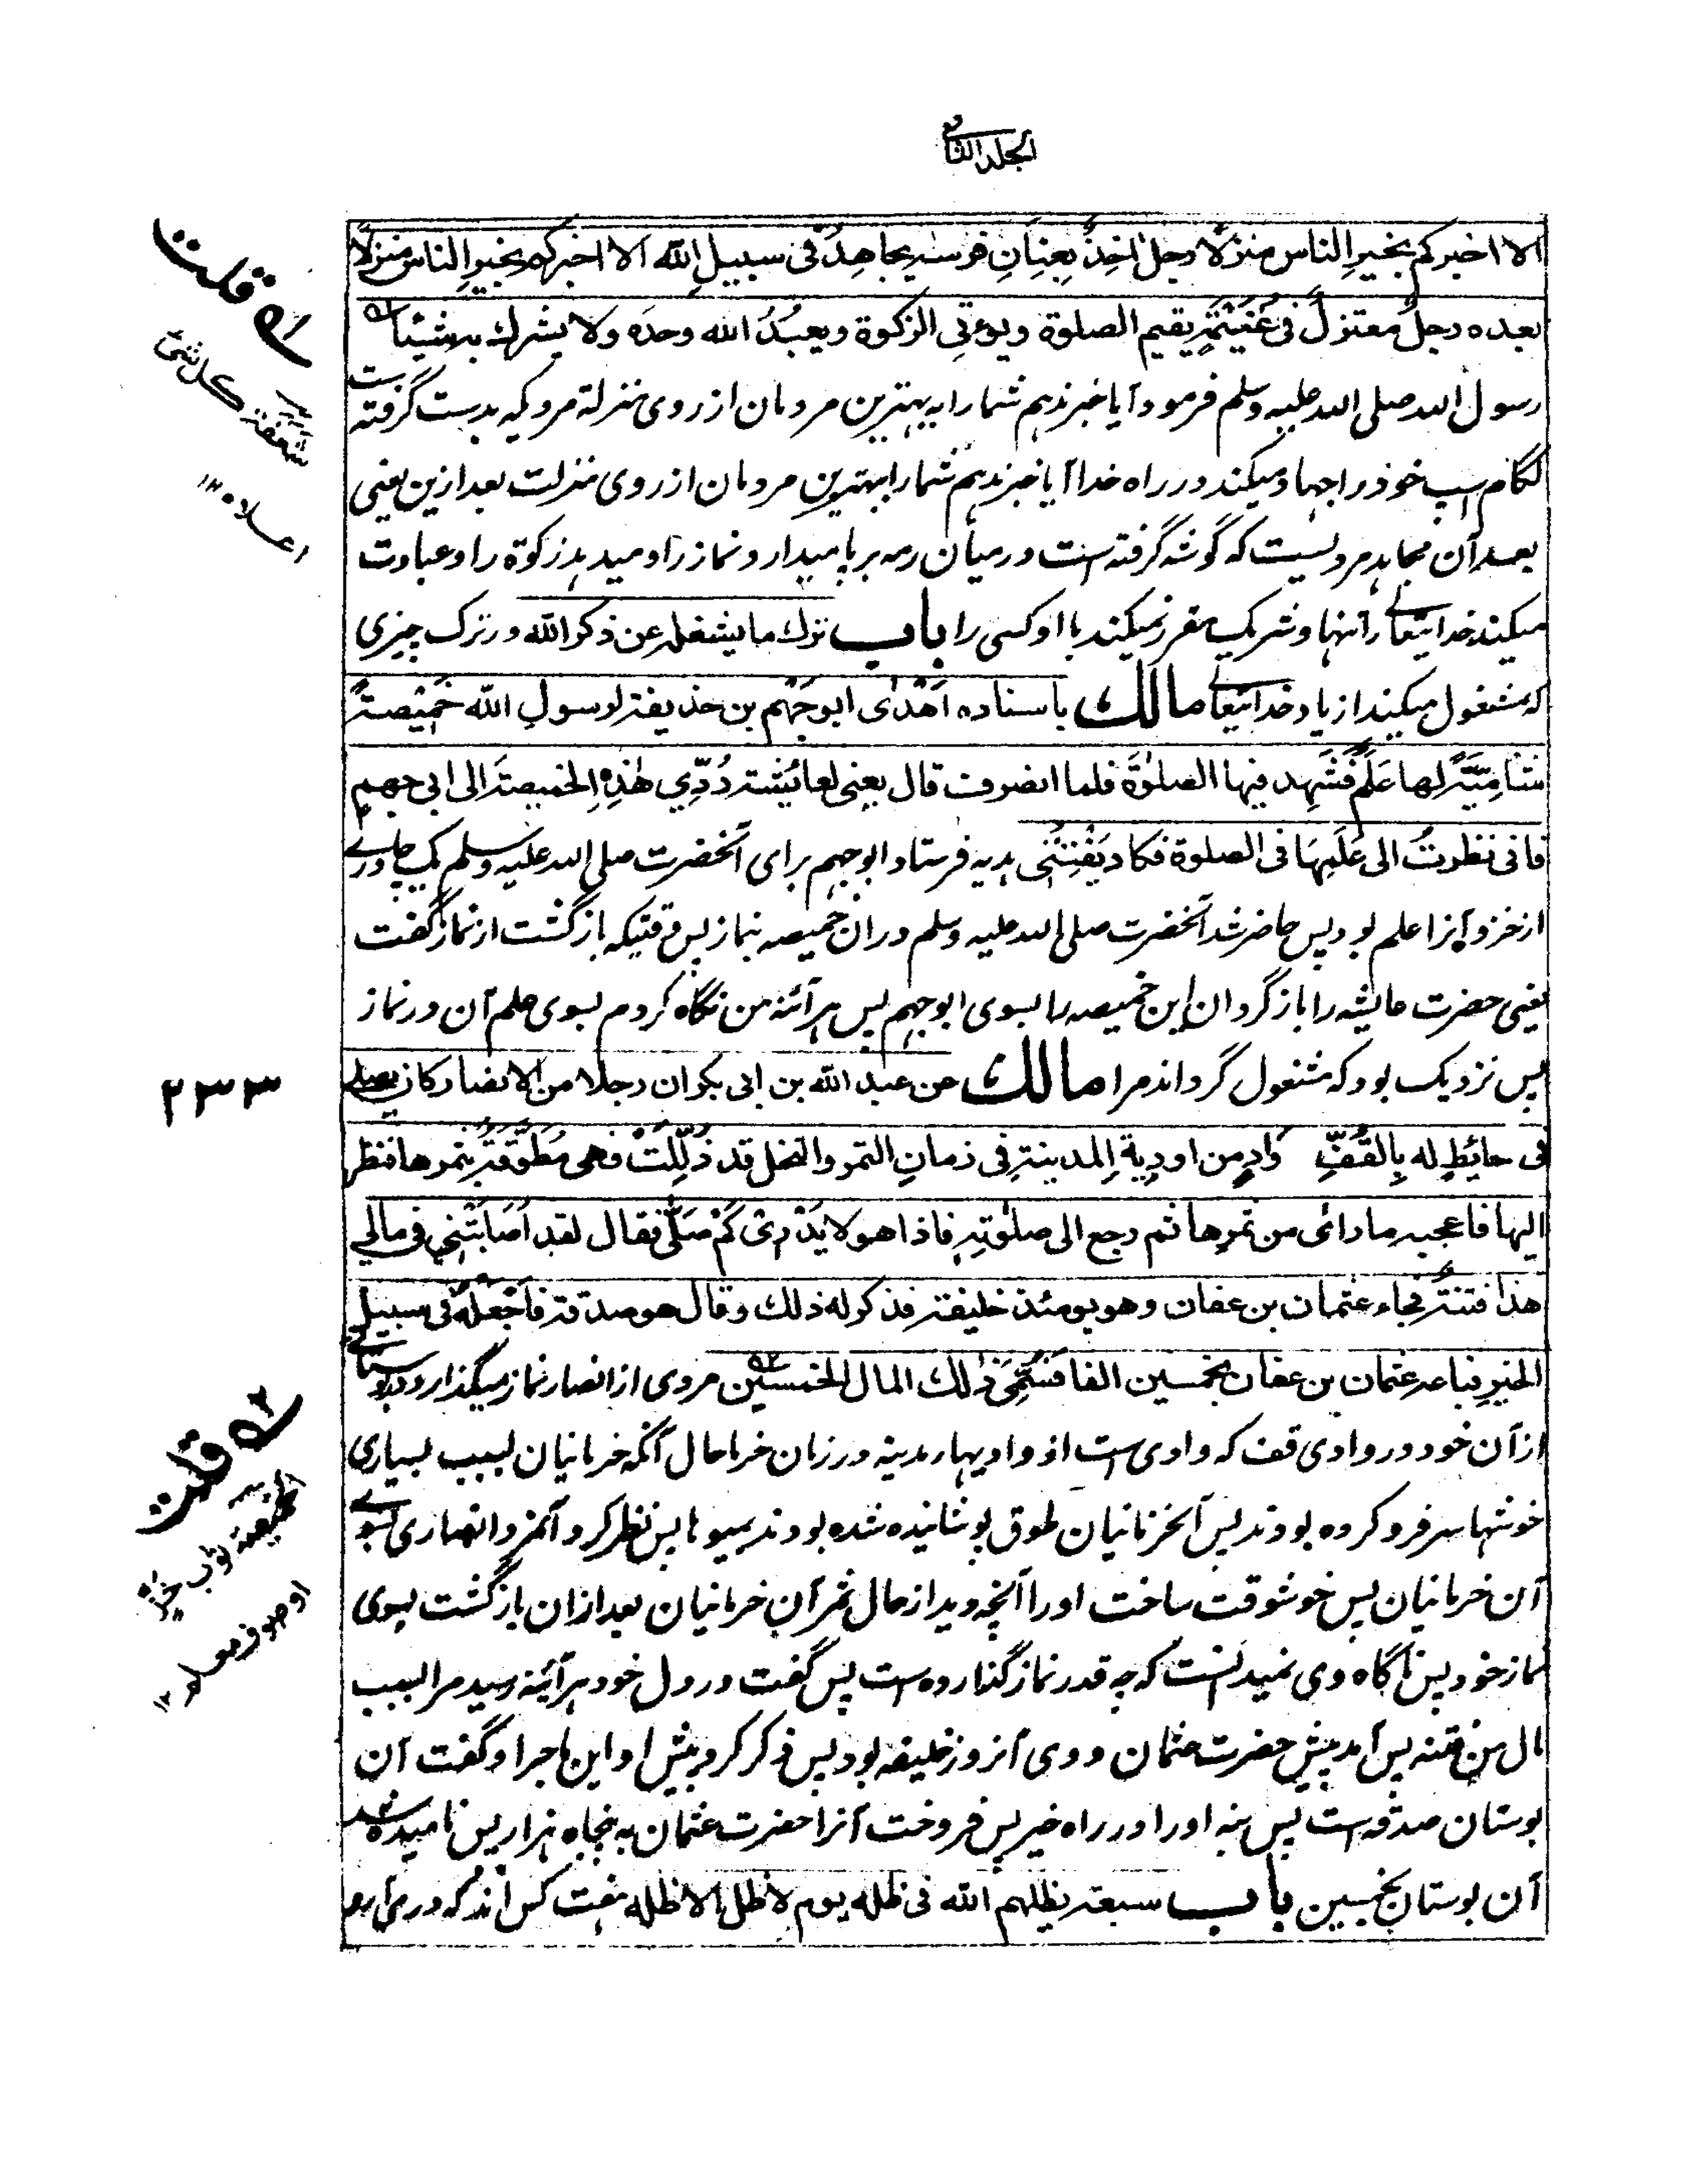 الجلد الثانی
الا اخبركم بخير الناس منزلا رجل اخذ بعنان فرسه يجاهد فى سبيل الله الا اخبركم بخير الناس منزلا
بعده رجل معتزل فى غنيمة يقيم الصلوة ويؤتى الزكوة ويعبد الله وحده ولا يشرك به شيئا
رسول الله صلى الله عليه وسلم فرمود آیا خبر ندہم شما را به بهترین مردمان از روی منزلة مردیکه بدست گرفته است
لگام اسپ خود را جهاد میکند در راه خدا آیا خبر ندهم شما را ببهترین مردمان از روی منزلت بعد ازین یعنی
بعد آن مجاهد مردیست که گوشه گرفته است در میان رمه برپا میدارد نماز را و میدهد زکوة را و عبادت
میکند خدایتعالے را تنها و شریک مقرر نمیکند با او کسی را باب ترك ما يشغله عن ذكر الله در ترک چیزی
که مشغول میکند از یاد خدایتعالے مالك باسناده اَهْدٰى ابو جَهْم بن حذيفة لرسول الله خَمِيْصَةً
شامِيَّةً لها عَلَمٌ فشَهِد فيها الصلوٰةَ فلما انصرفت قال يعنى لعائشة رُدِّي هٰذِهِ الخميصةَ الى ابى جهم
فانى نظرتُ الى عَلَمِهَا فى الصلوة فكاد يَفْتِنُنى ہدیه فرستاد ابو جهم برای آنحضرت صلی الله علیه وسلم یک چادرے
از خز و آنرا علم بود پس حاضر شد آنحضرت صلی الله علیه وسلم دران خمیصه بنماز پس وقتیکه بازگشت از نماز گفت
یعنی حضرت عایشه را باز گردان این خمیصه را بسوی ابو جهم پس هر آئنه من نگاه کردم بسوی علم آن در نماز
پس نزدیک بود که مشغول گرداند مرا مالك عن عبد الله بن ابى بكر ان رجلا من الانصار كان يصلى
فى حائِطٍ له بِالقُفِّ وادٍ من اودِيةِ المدينةِ فى زمانِ التمر والنخل قد ذُلِّلَتْ فهى مُطَوَّقَةٌ بثمرها فنظر
اليها فاعجبه ما رائى من ثمرها ثم رجع الى صلوته فاذا هو لا يَدْرِىْ كَمْ صَلّٰى فقال لقد اَصَابَتْنِي فى مالي
هذا فتنةٌ فجاء عثمان بن عفان وهو يومئذ خليفة فذكر له ذلك وقال هو صدقة فاجْعَلْهُ فى سبيل
الخير فباعه عثمان بن عفان بخمسين الفا فسُمِّيَ ذٰلك المال الخمسين مردی از انصار نماز میگذارد در بوستانے
از آن خود در وادی قف که وادی ست از وادیهاء مدینه در زمان خرما حال آنکه خرمانیان بسبب بسیاری
خوشها سر فرو کرده بودند پس آنخرمانیان طوق پوشانیده شده بودند بمیوها پس نظر کرد آنمرد انصاری بسوے
آن خرمانیان پس خوشوقت ساخت او را آنچه دید از حال ثمر آن خرمانیان بعد ازان بازگشت بسوی
نماز خود پس ناگاه وی نمیدانست که چه قدر نماز گذارده ست پس گفت در دل خود هر آئینه رسید مرا بسبب
مال من فتنه پس آمد پیش حضرت عثمان و وی آنروز خلیفه بود پس ذکر کرد پیش او این ماجرا و گفت آن
بوستان صدقه است پس بنه او را در راه خیر پس فروخت آنرا حضرت عثمان به پنجاه هزار پس نامیده شد
آن بوستان بخمسین باب سبعة يظلهم الله فى ظله يوم لا ظل الا ظله هفت کس اند که در می آرد
۱ه قلت
شعفة كل شئ
اعلاه ۱۲
۲۳۳
۲ه قلت
الخميصة ثوب خز
او صوف معلم ۱۲